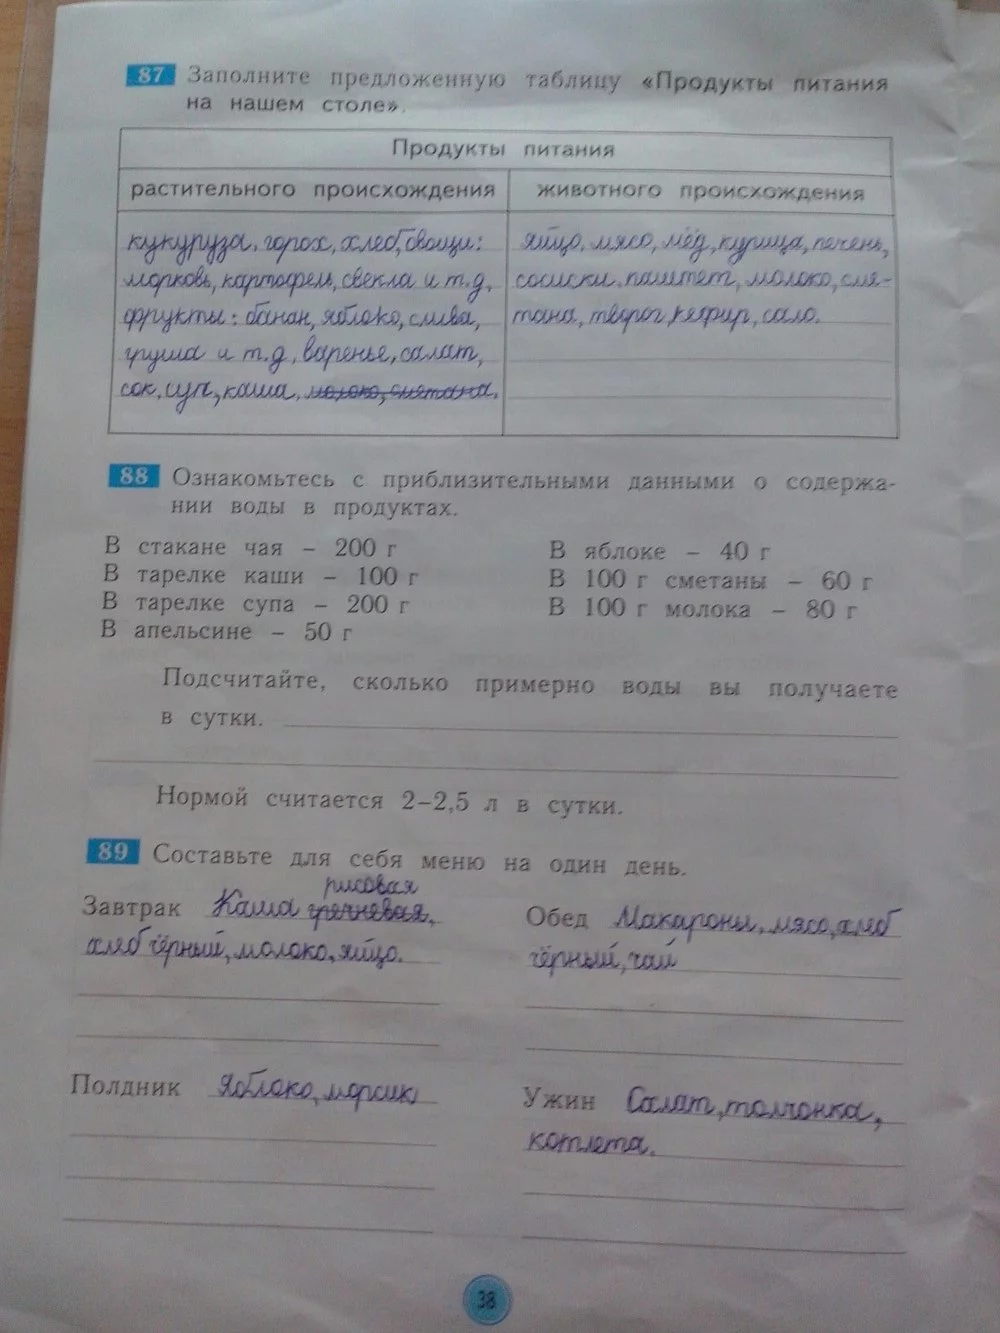 87 Заполните предложенную таблицу «Продукты питания
на нашем столе».
Продукты питания
растительного происхождения
животного происхождения
кукуруза, горох, хлеб, овощи:
морковь, картофель, свекла и т.д,
фрукты: банан, яблоко, слива,
груша и т.д, варенье, салат,
сок, суп, каша, молоко, сметана.
яйцо, мясо, мёд, курица, печень,
сосиски, паштет, молоко, сме-
тана, творог, кефир, сало.
88 Ознакомьтесь с приблизительными данными о содержа-
нии воды в продуктах.
В стакане чая – 200 г
В тарелке каши – 100 г
В тарелке супа – 200 г
В апельсине – 50 г
В яблоке – 40 г
В 100 г сметаны – 60 г
В 100 г молока – 80 г
Подсчитайте, сколько примерно воды вы получаете
в сутки.
Нормой считается 2–2,5 л в сутки.
89 Составьте для себя меню на один день.
рисовая
Завтрак Каша гречневая,
хлеб чёрный, молоко, яйцо.
Обед Макароны, мясо, хлеб
чёрный, чай
Полдник Яблоко, морсик
Ужин Салат, толчонка,
котлета.
38